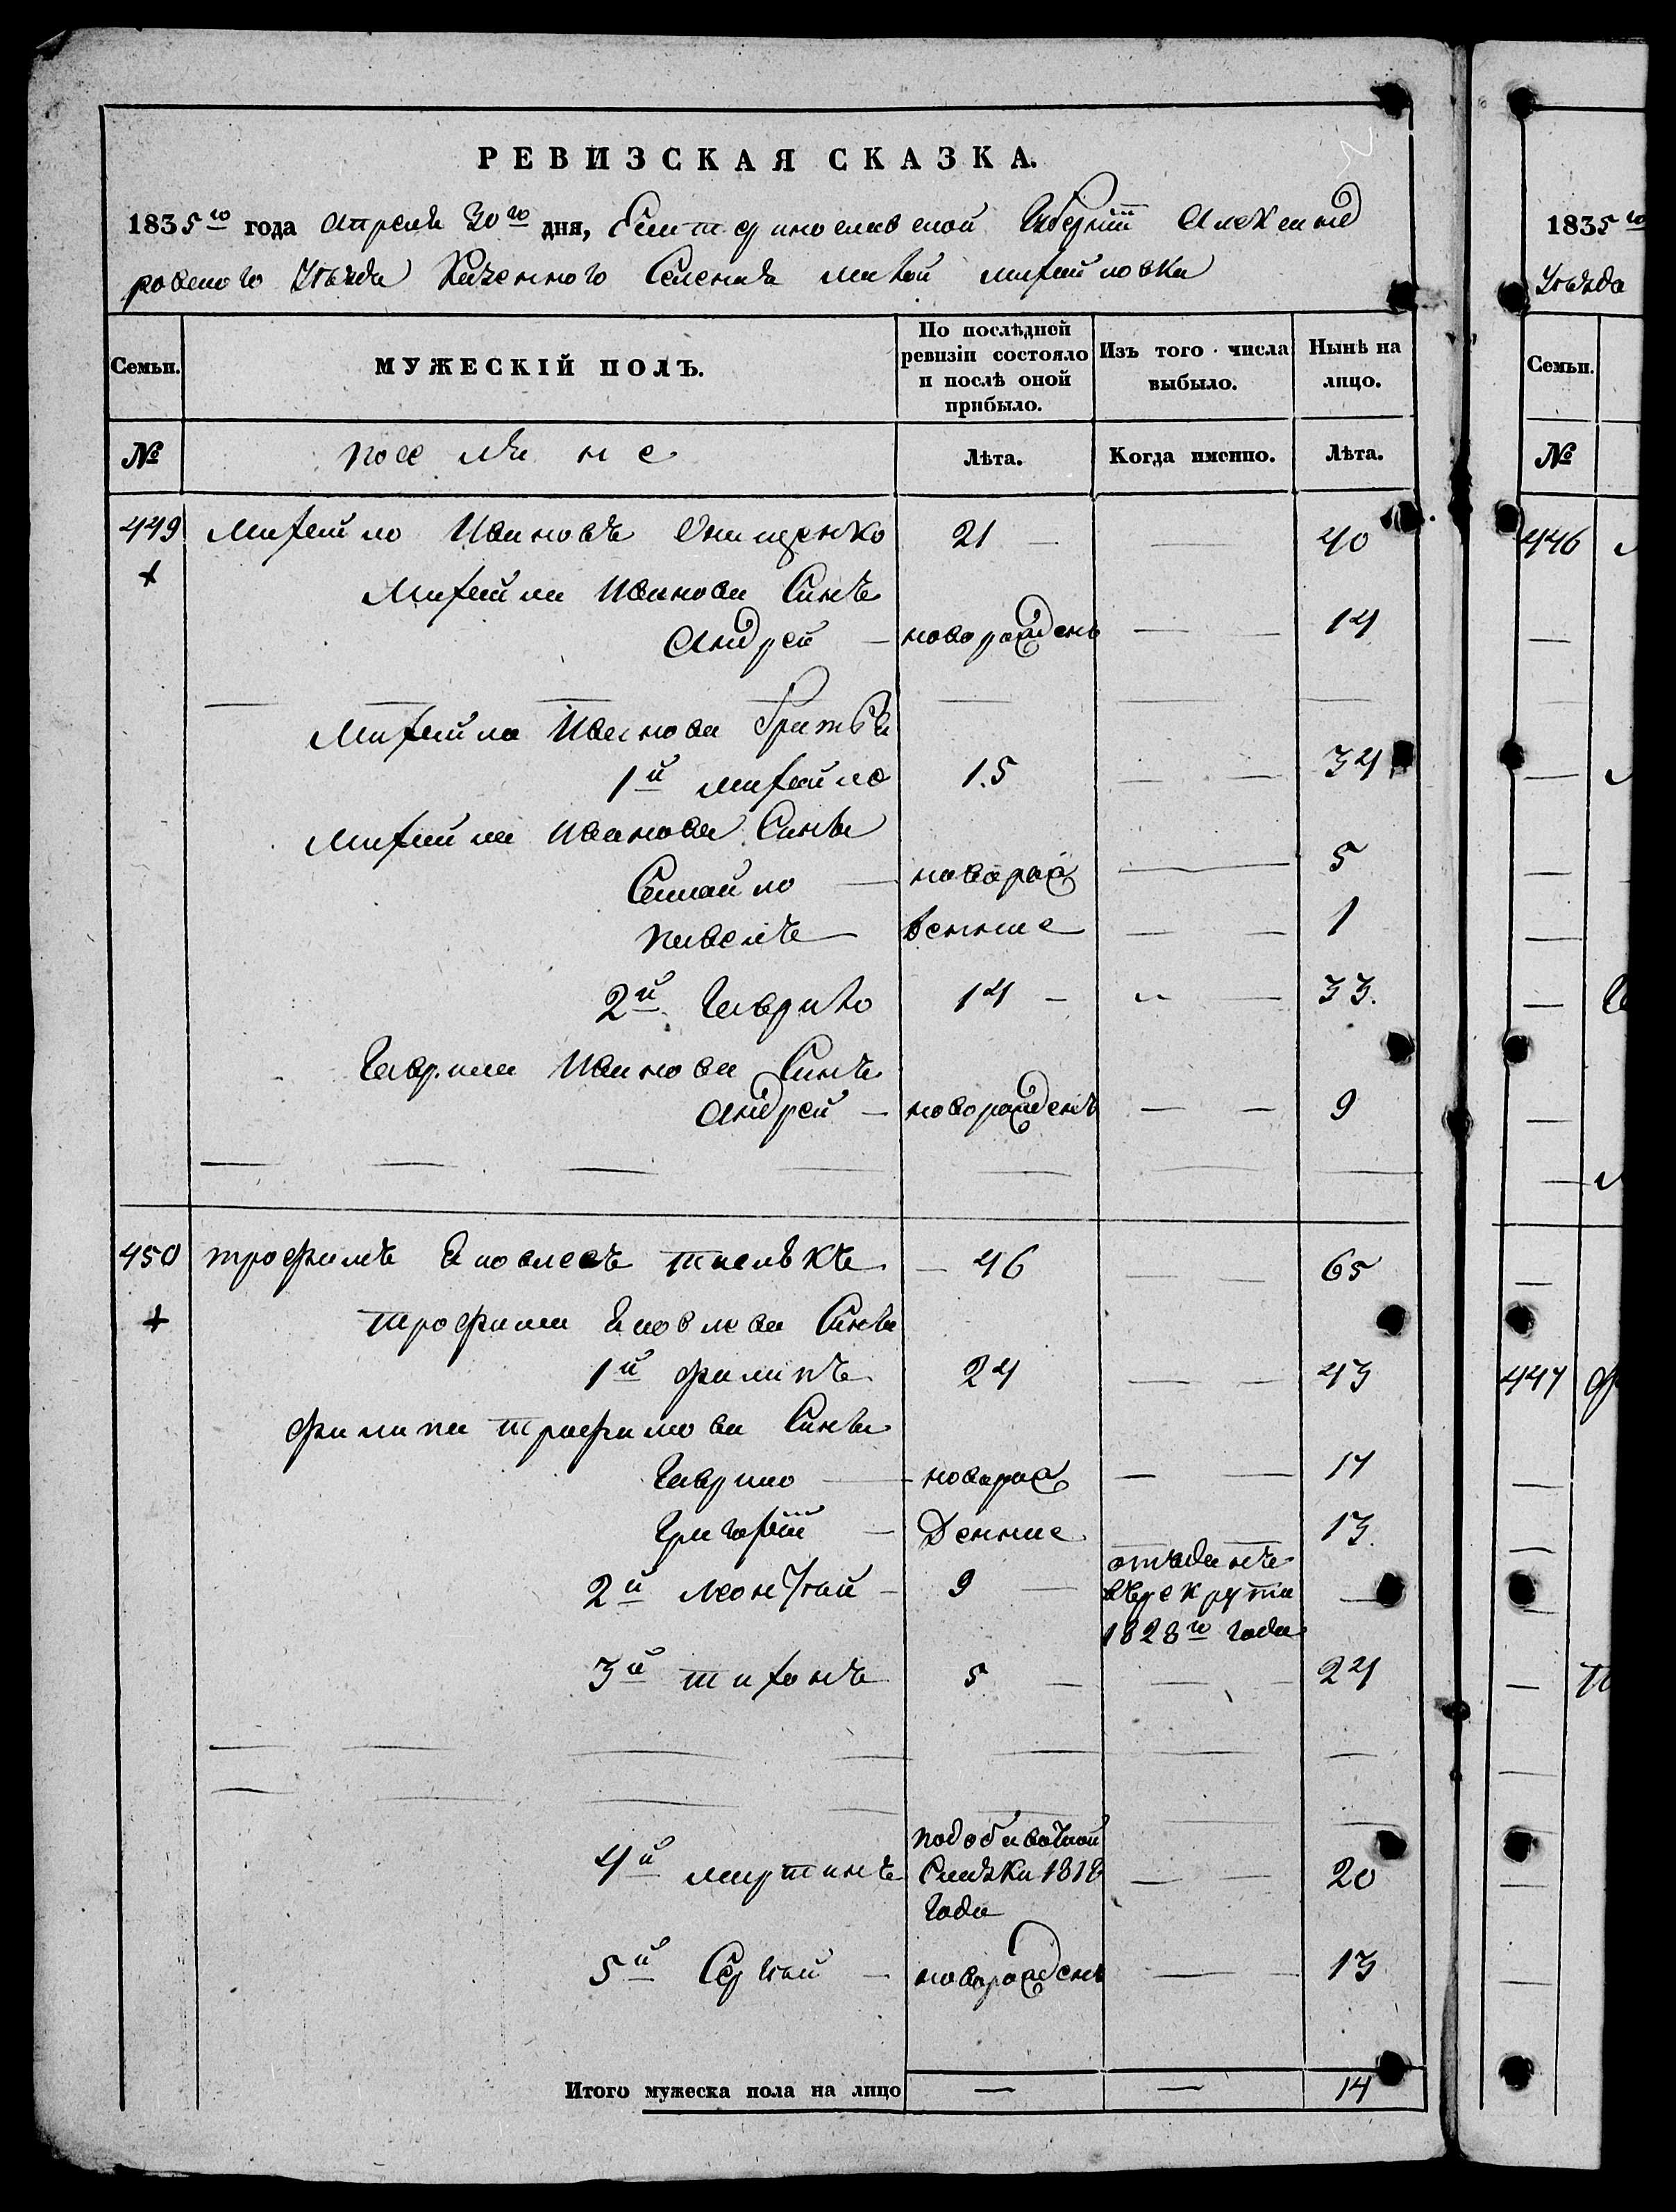 РЕВИЗСКАЯ СКАЗКА.
1835го года Апреля 30го дня, Екатеринославской Губернiи Александ
ровского Уѣзда Казенного Селенiя Малой михайловки
Семьи. МУЖЕСКІЙ ПОЛЪ. По послѣдней ревизіи состояло и послѣ оной прибыло. Изъ того числа выбыло. Нынѣ на лицо.
№ поселяне Лѣта. Когда именно. Лѣта.
449 Михайло Ивановъ Онищенко 21 — — 40
+ Михайла Иванова Синъ
Андрей — новорожденъ — — 14
Михайла Иванова братья
1й михайло 15 — — 34
михайла Иванова Сины
Самойло — новорож — 5
павелъ — денние — — 1
2й Гаврило 14 — — 33.
Гаврила Иванова Синъ
Андрей — новорожденъ — — 9
450 трофимъ тислѣкъ — 46 — — 65
+ трофима Сины
1й филипъ 24 — — 43
филипа трофимова Сины
Гаврило — новорож — — 17
Григорiй — Денние 13.
отъданъ
2й леонтий — 9 — върекрута —
1828го года
3й тихонъ 5 — — — 24
подобавочной
4й мартинъ Сказки 1818 — — 20
года
5й Сергий — новорожденъ — — 13
Итого мужеска пола на лицо — — 14
1835го
Уѣзда
Семьи.
№
446
447